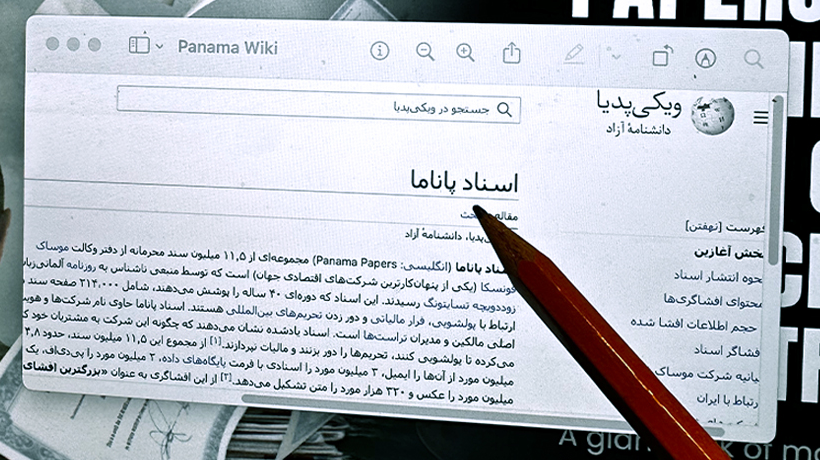 PAPERS
Panama Wiki
ویکی‌پدیا
دانشنامهٔ آزاد
جستجو در ویکی‌پدیا
اسناد پاناما
مقاله
دانشنامهٔ آزاد
اسناد پاناما (انگلیسی: Panama Papers) مجموعه‌ای از ۱۱٫۵ میلیون سند محرمانه از دفتر وکالت موساک
فونسکا (یکی از پنهان‌کارترین شرکت‌های اقتصادی جهان) است که توسط منبعی ناشناس به روزنامه آلمانی
زوددویچه تسایتونگ رسیدند. این اسناد که دوره‌ای ۴۰ ساله را پوشش می‌دهند، شامل ۲۱۴٬۰۰۰ صفحه سند
ارتباط با پولشویی، فرار مالیاتی و دور زدن تحریم‌های بین‌المللی هستند. اسناد پاناما حاوی نام شرکت‌ها و
اصلی مالکین و مدیران تراست‌ها است. اسناد یادشده نشان می‌دهند که چگونه این شرکت به مشتریان خود
می‌کرده تا پولشویی کنند، تحریم‌ها را دور بزنند و مالیات نپردازند.[۱] از مجموع این ۱۱٫۵ میلیون سند، حدود ۴٫۸
میلیون مورد از آن‌ها را ایمیل، ۳ میلیون مورد را اسنادی با فرمت پایگاه‌های داده، ۲ میلیون مورد را پی‌دی‌اف، یک
میلیون مورد را عکس و ۳۲۰ هزار مورد را متن تشکیل می‌دهد.[۲] از این افشاگری به عنوان «بزرگترین افشای
فهرست [نهفتن]
بخش آغازین
نحوه انتشار اسناد
محتوای افشاگری‌ها
حجم اطلاعات افشا شده
افشاگر اسناد
بیانیه شرکت موساک
ارتباط با ایران
A giant of